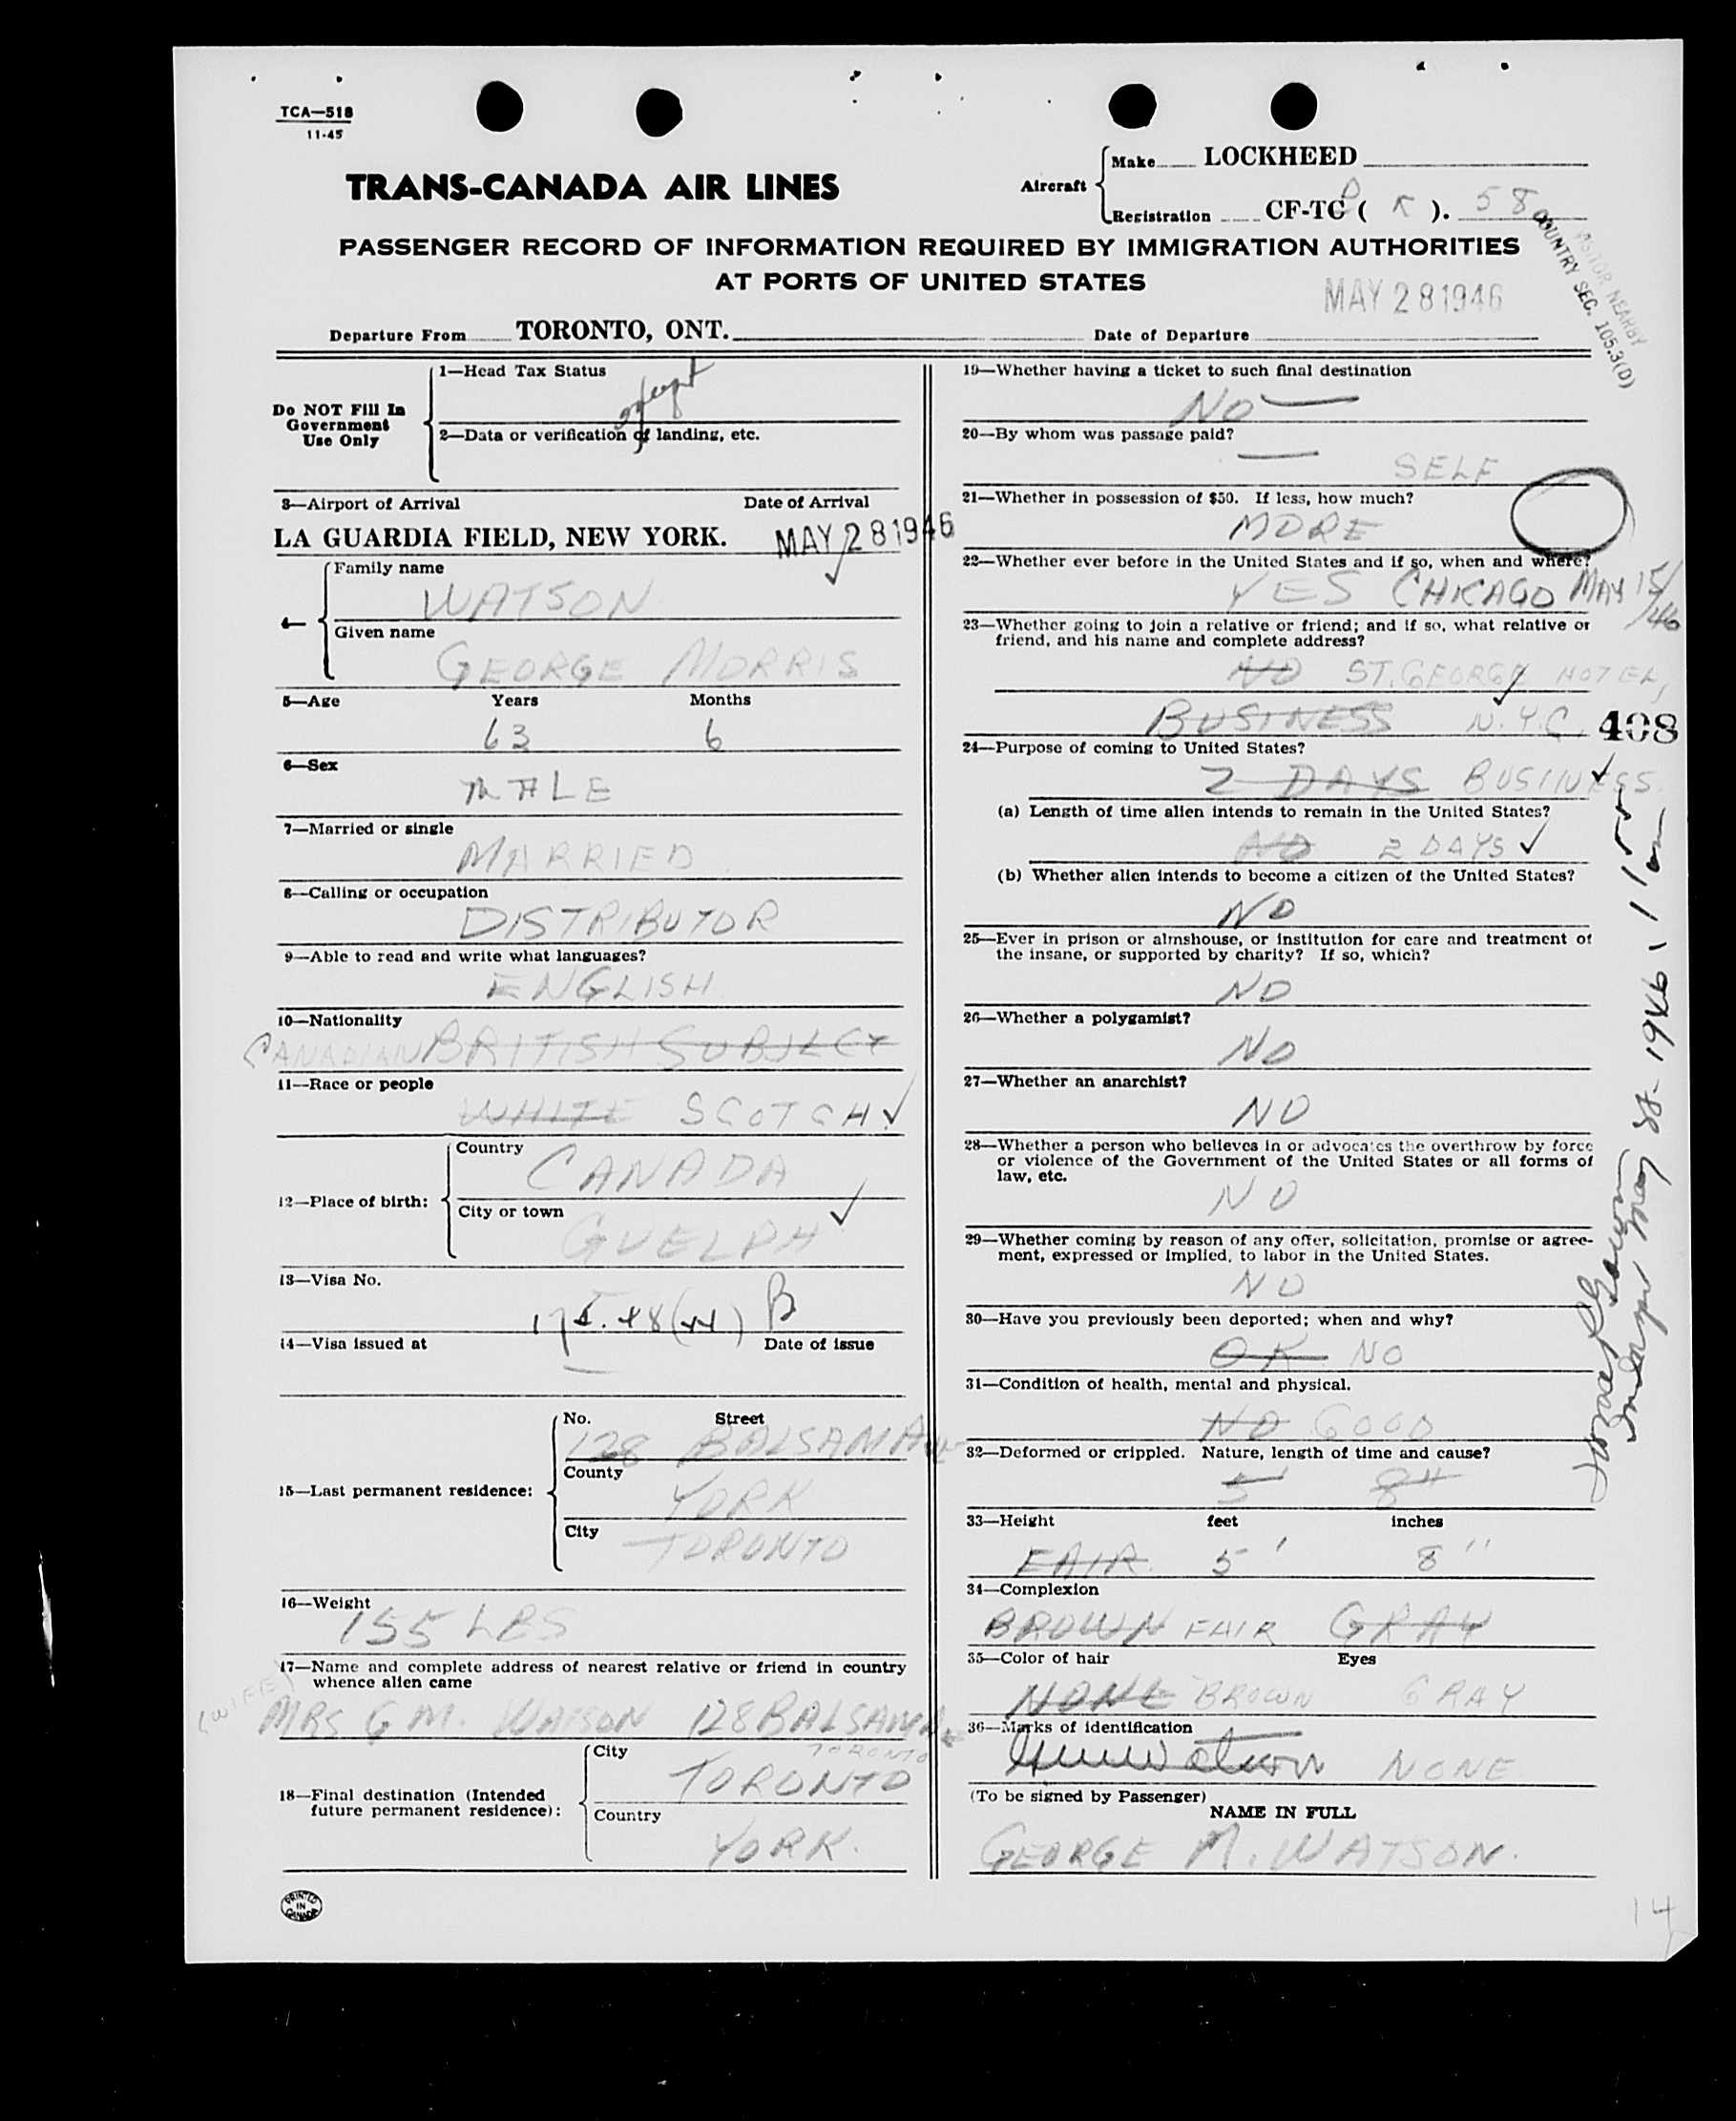 TCA—518
11-45
TRANS-CANADA AIR LINES
Aircraft
Make LOCKHEED
Registration CF-TC ( K ). 58
PASSENGER RECORD OF INFORMATION REQUIRED BY IMMIGRATION AUTHORITIES
AT PORTS OF UNITED STATES
MAY 28 1946
VISITOR NEARBY
COUNTRY SEC. 105.3(D)
Departure From TORONTO, ONT.
Date of Departure
Do NOT Fill In
Government
Use Only
1—Head Tax Status
2—Data or verification of landing, etc.
3—Airport of Arrival Date of Arrival
LA GUARDIA FIELD, NEW YORK. MAY 28 1946
4—
Family name
WATSON
Given name
GEORGE MORRIS
5—Age Years Months
63 6
6—Sex
MALE
7—Married or single
MARRIED
8—Calling or occupation
DISTRIBUTOR
9—Able to read and write what languages?
ENGLISH
10—Nationality
CANADIAN BRITISH SUBJECT
11—Race or people
WHITE SCOTCH
12—Place of birth:
Country
CANADA
City or town
GUELPH
13—Visa No.
B
14—Visa issued at Date of issue
15—Last permanent residence:
No. Street
128 BALSAM AVE
County
YORK
City
TORONTO
16—Weight
155 LBS
17—Name and complete address of nearest relative or friend in country
whence alien came
(WIFE)
MRS G M. WATSON 128 BALSAM AVE
TORONTO
18—Final destination (Intended
future permanent residence):
City
TORONTO
Country
YORK.
PRINTED
IN
CANADA
19—Whether having a ticket to such final destination
NO
20—By whom was passage paid?
SELF
21—Whether in possession of $50. If less, how much?
MORE
22—Whether ever before in the United States and if so, when and where?
YES CHICAGO MAY 15/46
23—Whether going to join a relative or friend; and if so, what relative or
friend, and his name and complete address?
NO ST. GEORGE HOTEL,
BUSINESS N.Y.C. 408
24—Purpose of coming to United States?
2 DAYS BUSINESS
(a) Length of time alien intends to remain in the United States?
NO 2 DAYS
(b) Whether alien intends to become a citizen of the United States?
NO
25—Ever in prison or almshouse, or institution for care and treatment of
the insane, or supported by charity? If so, which?
NO
26—Whether a polygamist?
NO
27—Whether an anarchist?
NO
28—Whether a person who believes in or advocates the overthrow by force
or violence of the Government of the United States or all forms of
law, etc.
NO
29—Whether coming by reason of any offer, solicitation, promise or agree-
ment, expressed or implied, to labor in the United States.
NO
30—Have you previously been deported; when and why?
OK NO
31—Condition of health, mental and physical.
NO GOOD
32—Deformed or crippled. Nature, length of time and cause?
5' 8"
33—Height feet inches
FAIR. 5' 8"
34—Complexion
BROWN FAIR GRAY
35—Color of hair Eyes
NONE BROWN GRAY
36—Marks of identification
NONE
(To be signed by Passenger)
NAME IN FULL
GEORGE M. WATSON.
May 28 - 1946
14